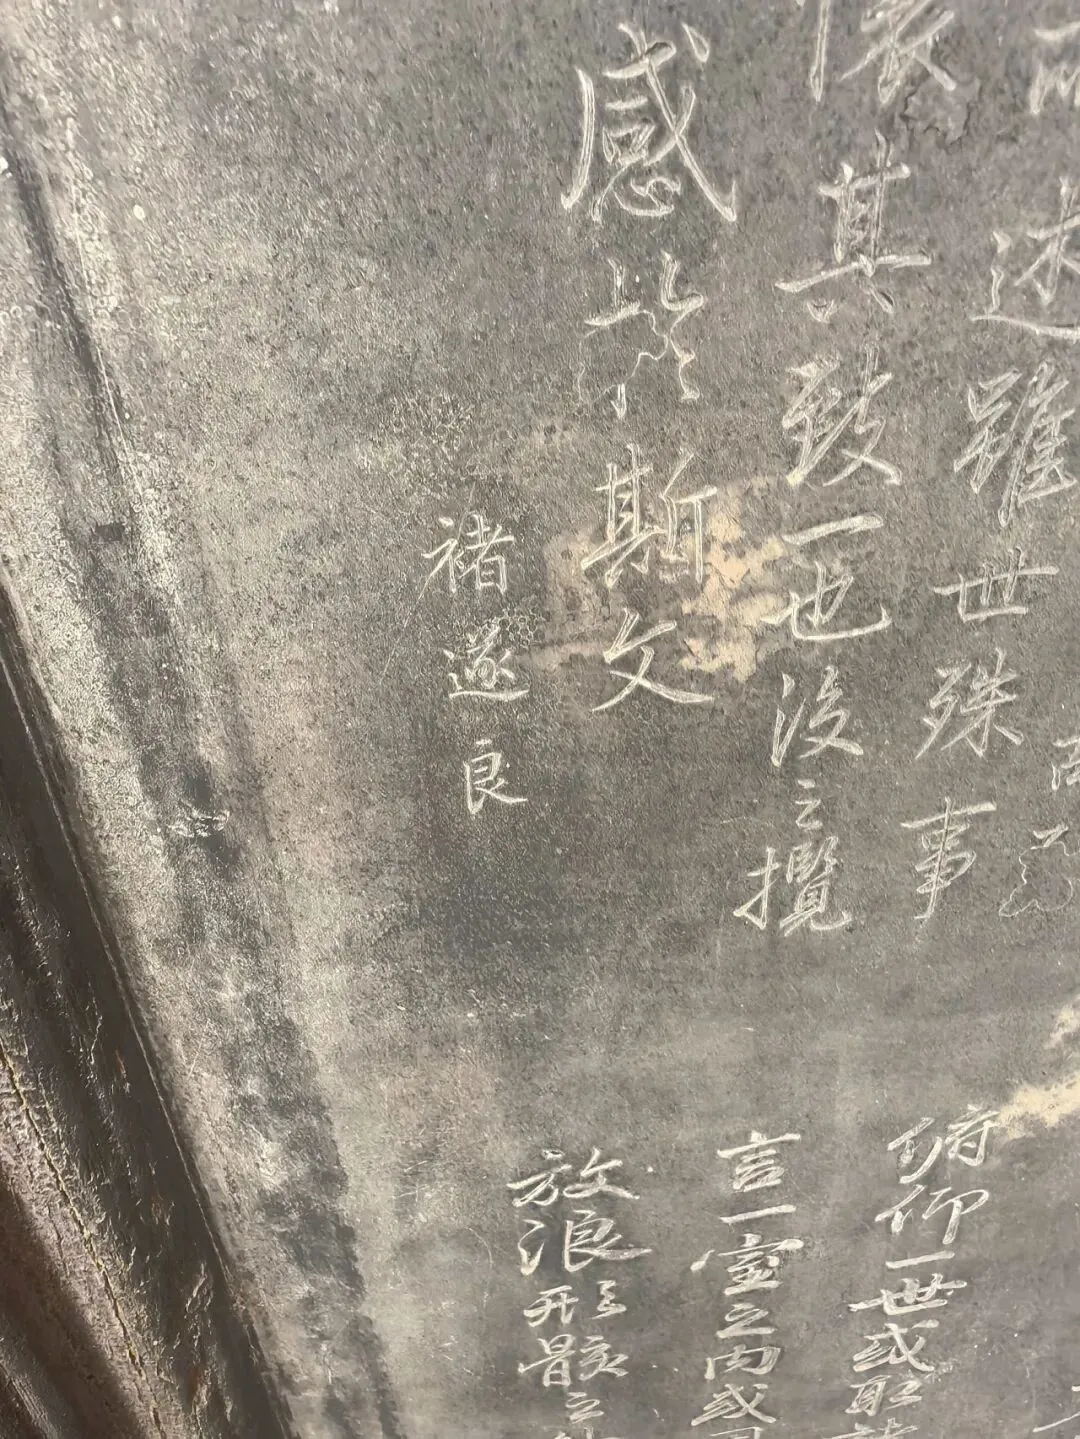 述雖世殊事
懷其致一也後之攬
感於斯文
褚遂良
俯仰一世或取諸
言一室之內或
放浪形骸之外